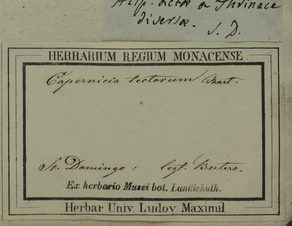 Hisp. delta a Thrinace
diversa. J. D.
HERBARIUM REGIUM MONACENSE.
Copernicia tectorum Mart.
St. Domingo: legt. Bertero.
Ex herbario Musei bot. Landishuth.
Herbar Univ. Ludov. Maximil.